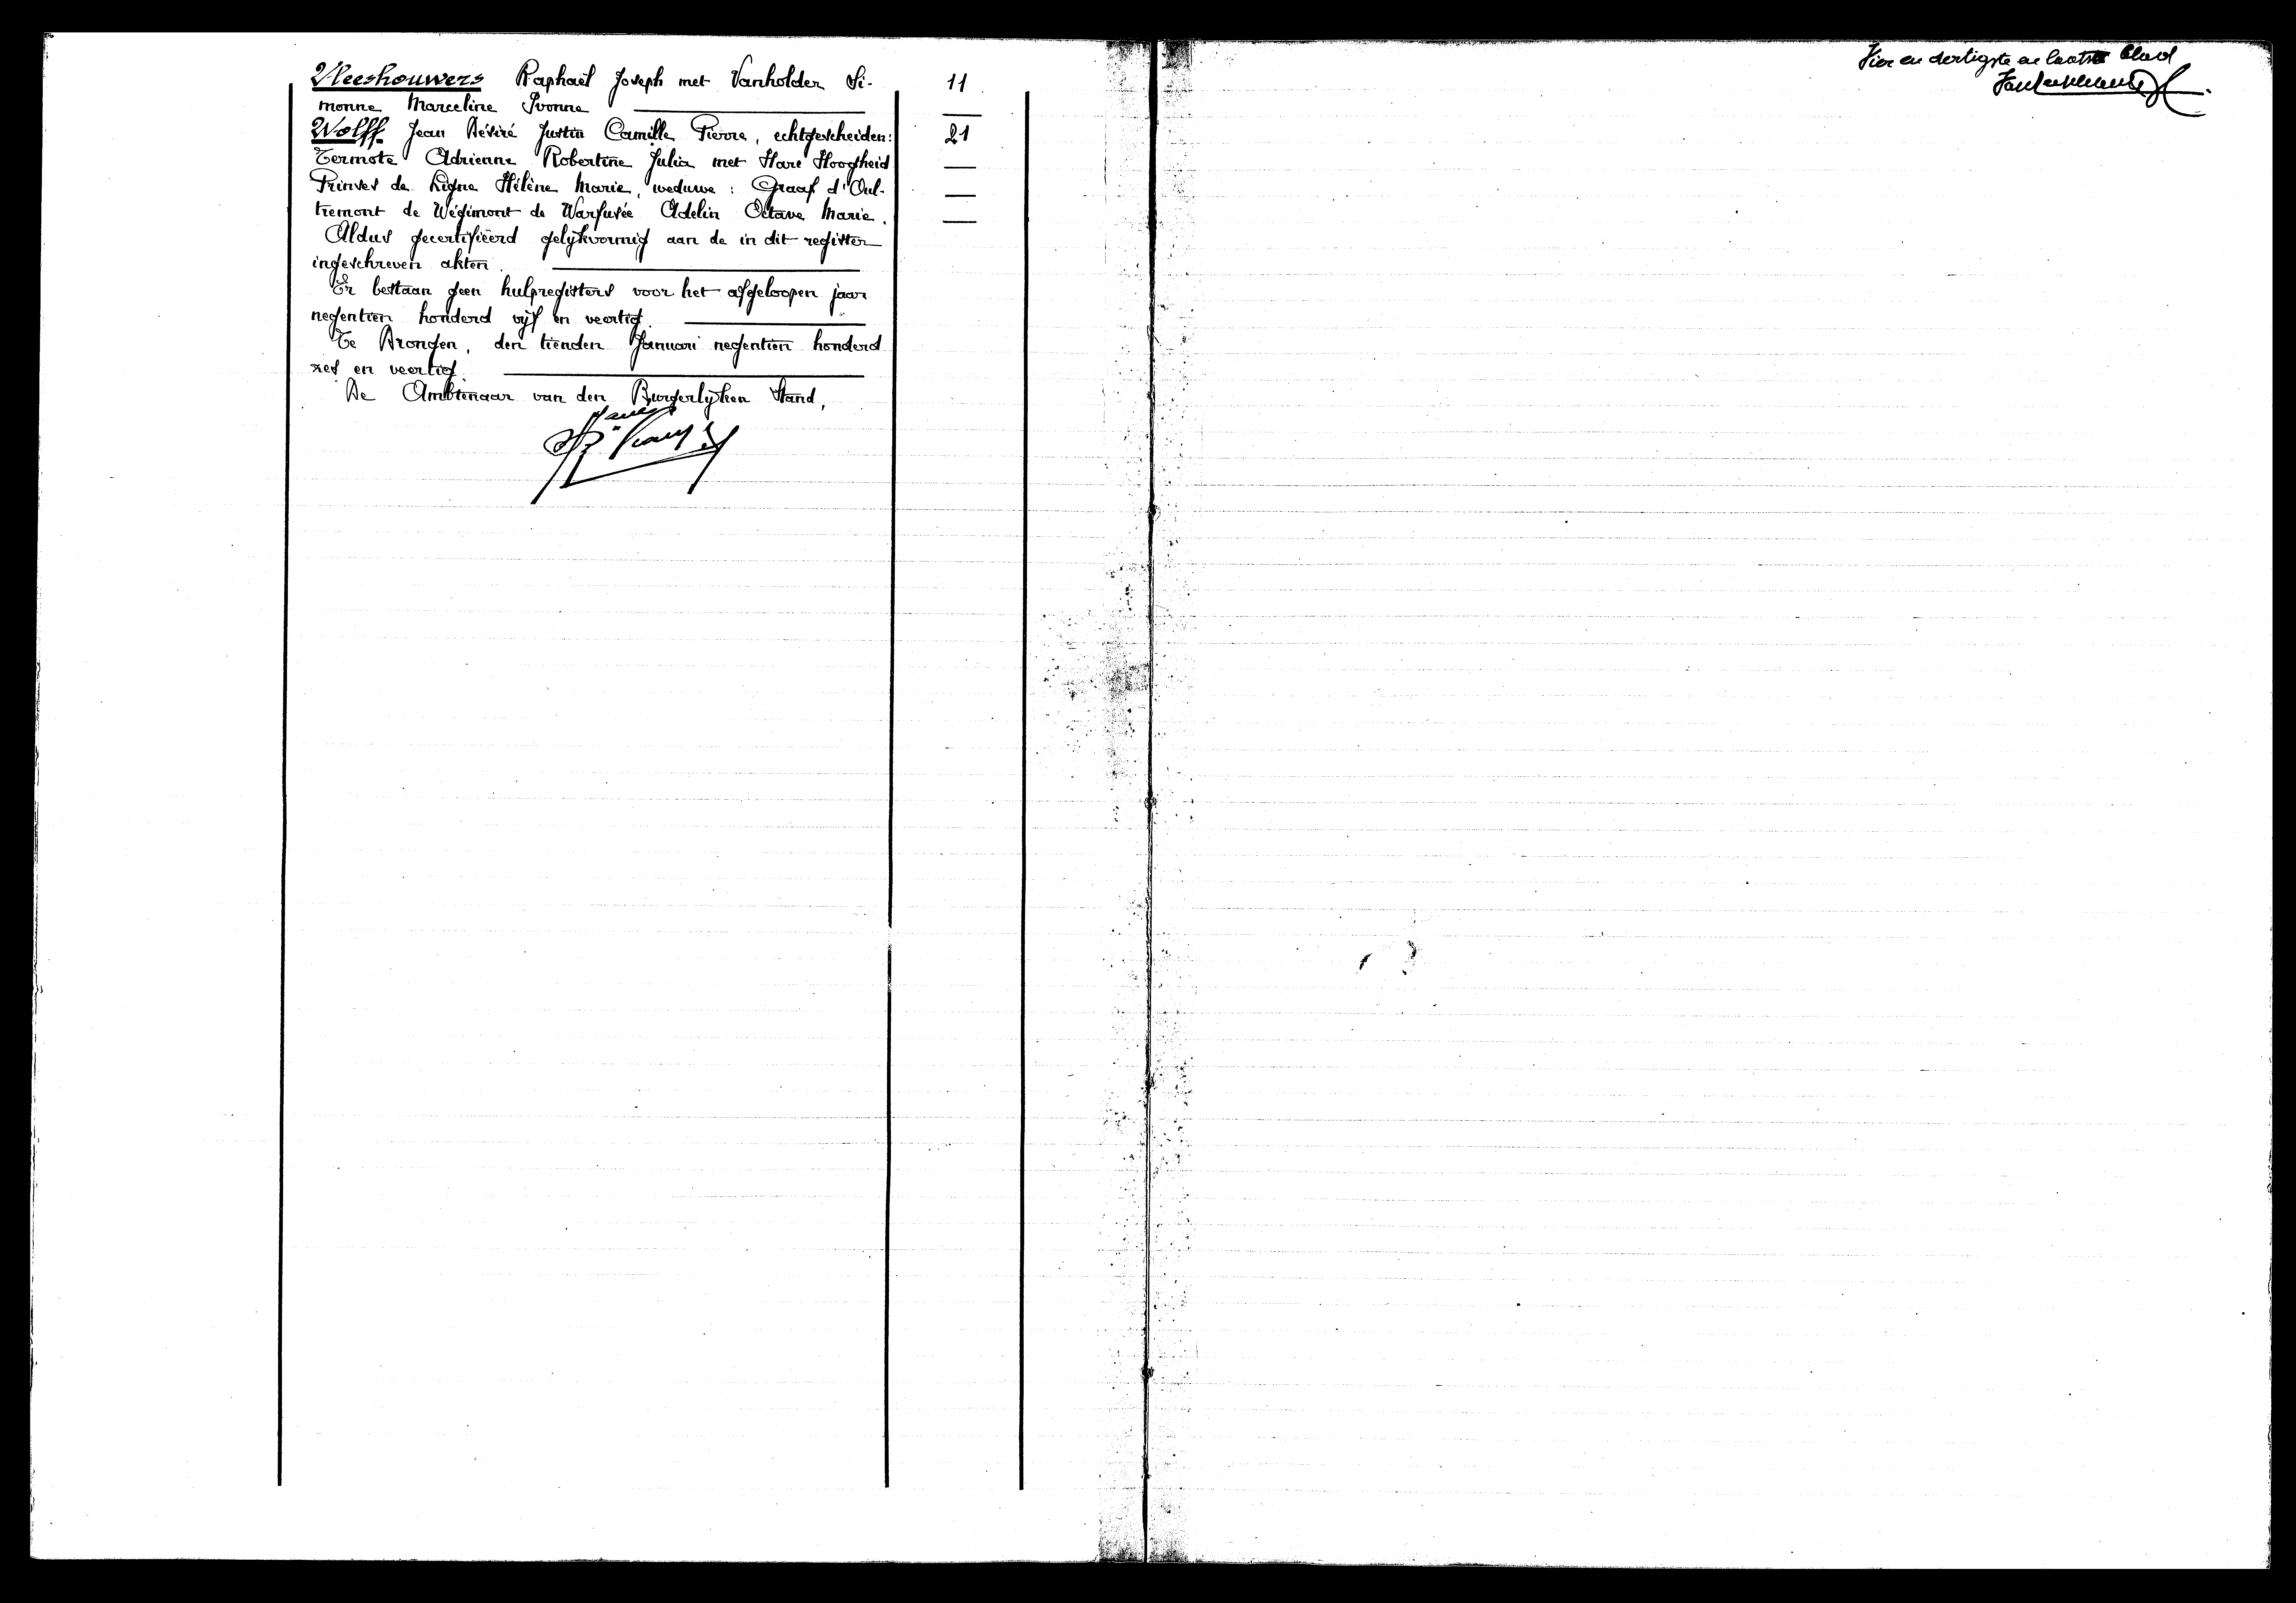 Vleeshouwers Raphaël Joseph met Vanholder Si- 11
monne Marceline Yvonne
Wolff Jean Désiré Justin Camille Pierre, echtgescheiden: 21
Termote Adrienne Robertine Julia met Hare Hoogheid
Prinses de Ligne Hélène Marie, weduwe : Graaf d'Oul-
tremont de Wégimont de Warfusée Adelin Octave Marie.
Aldus gecertifiëerd gelijkvormig aan de in dit register
ingeschreven akten.
Er bestaan geen hulpregisters voor het afgeloopen jaar
negentien honderd vijf en veertig.
Te Drongen, den tienden Januari negentien honderd
zes en veertig.
De Ambtenaar van den Burgerlijken Stand,
Vier en dertigste en laatste blad